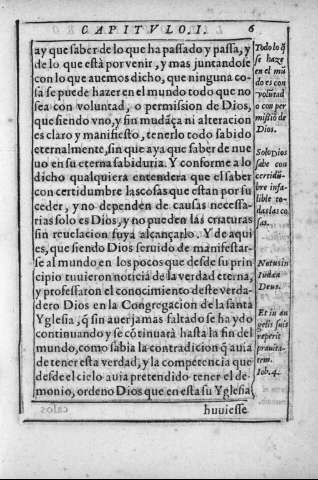 CAPITVLO. I.
6
ay que saber de lo que ha passado y passa, y
de lo que està por venir, y mas juntandose
con lo que auemos dicho, que ninguna co-
sa se puede hazer en el mundo todo que no
sea con voluntad, o permission de Dios,
que siendo vno, y sin mudãça ni alteracion
es claro y manifiesto, tenerlo todo sabido
eternalmente, sin que aya que saber de nue
uo en su eterna sabiduria. Y conforme a lo
dicho qualquiera entendera que el saber
con certidumbre las cosas que estan por su
ceder, y no dependen de causas necessa-
rias solo es Dios, y no pueden las criaturas
sin reuelacion suya alcançarlo. Y de aqui
es, que siendo Dios seruido de manifestar-
se al mundo en los pocos que desde su prin
cipio tuuieron noticia de la verdad eterna,
y professaron el conocimiento deste verda-
dero Dios en la Congregacion de la santa
Yglesia, q̃ sin auer jamas faltado se ha ydo
continuando y se cõtinuarà hasta la fin del
mundo, como sabia la contradicion q̃ auia
de tener esta verdad, y la competencia que
desde el cielo auia pretendido tener el de-
monio, ordeno Dios que en esta su Yglesia
huuiesse
Todo lo q̃
se haze
en el mũ
do es con
volũtad
o con per
missiõ de
Dios.
Solo Dios
sabe con
certidũ-
bre infa-
lible to-
das las co
sas.
Notus in
Iudæa
Deus.
Et in an
gelis suis
reperit
prauita-
tem.
Iob. 4.